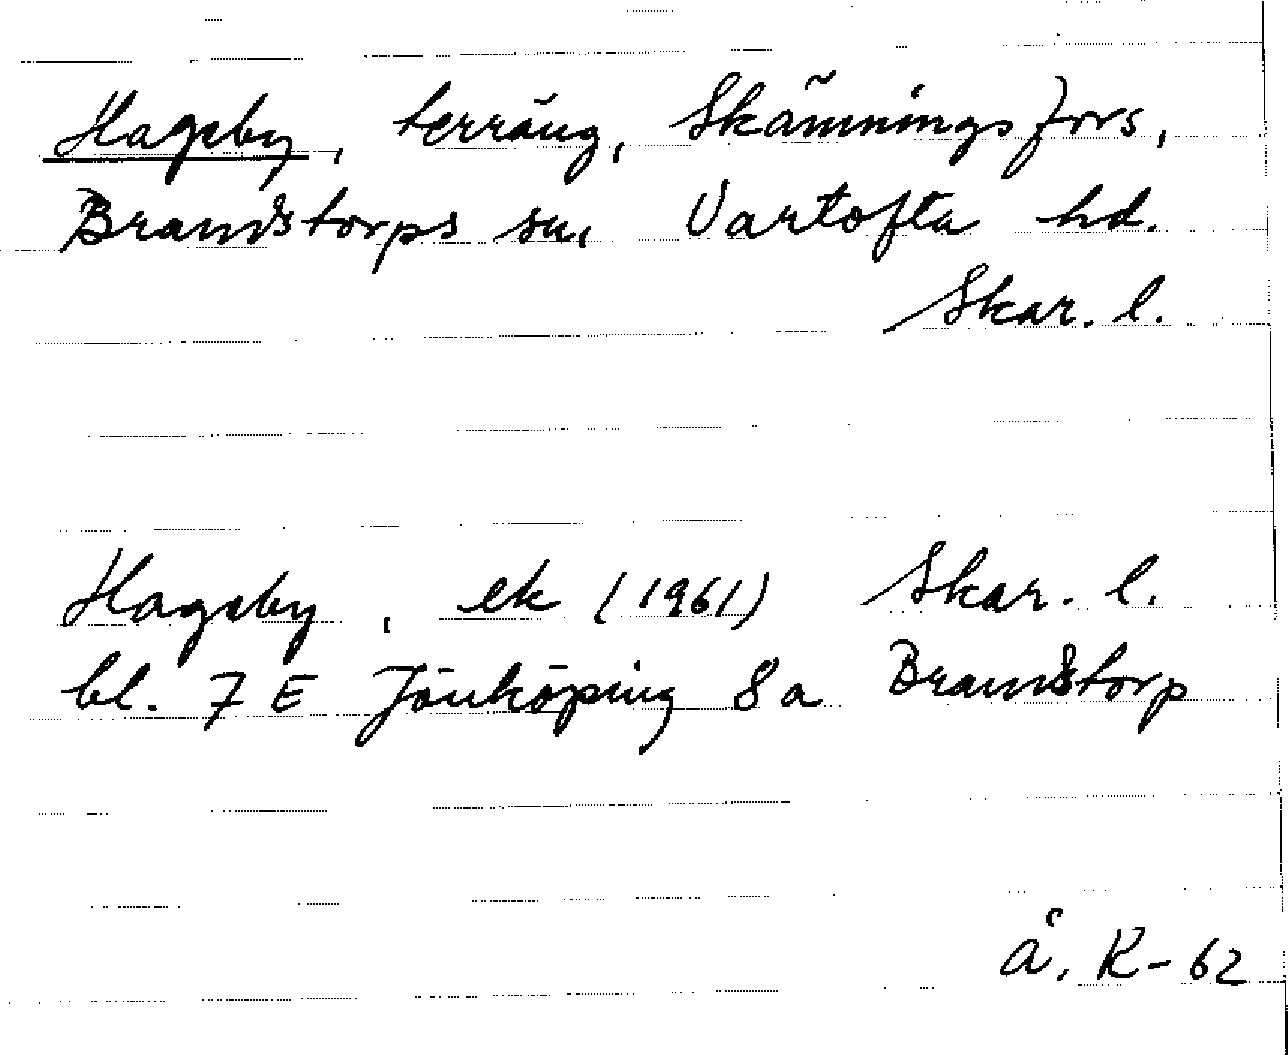 Hagsby, terräng, Skämningsfors,
Brandstorps sn, Vartofta hd.
Skar. l.
Hagsby, ek (1961) Skar. l.
bl. 7 E Jönköping 8 a Brandstorp
Å. K-62